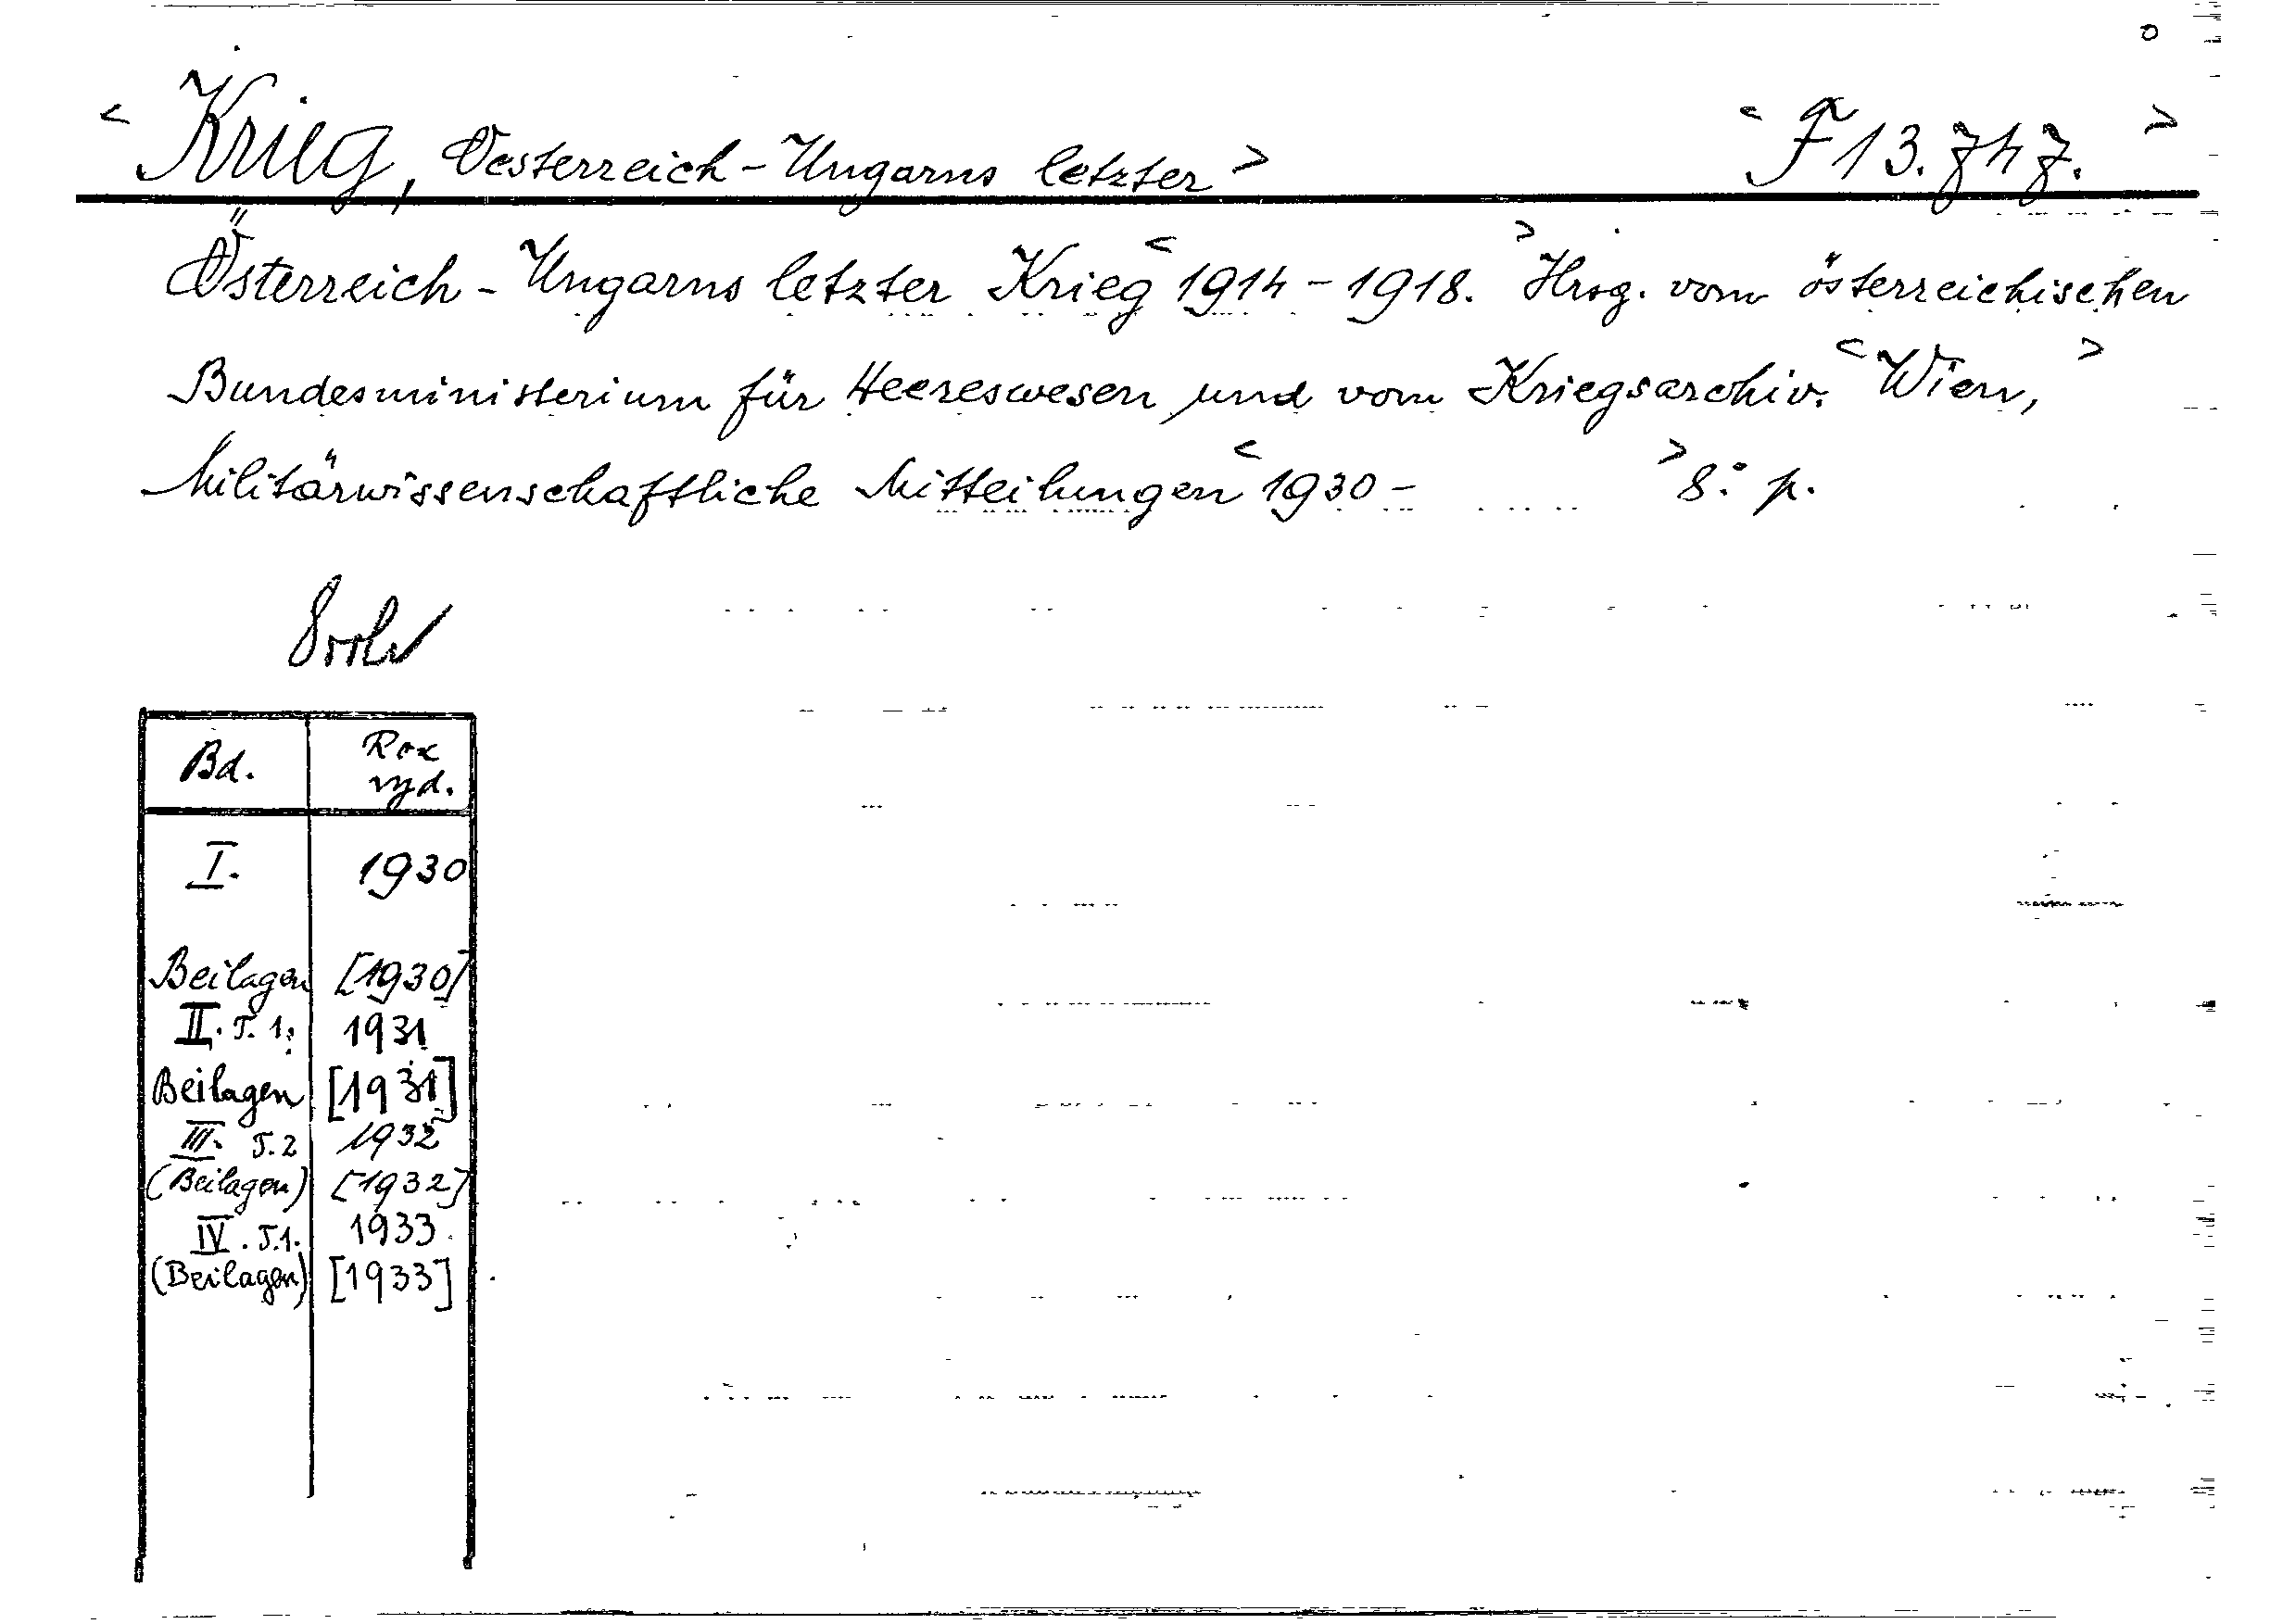 < Krieg, Oesterreich-Ungarns letzter > < F 13.747. >
Österreich-Ungarns letzter Krieg < 1914-1918. > Hrsg. vom österreichischen
Bundesministerium für Heereswesen und vom Kriegsarchiv. < Wien, >
Militärwissenschaftliche Mitteilungen < 1930- > 8° p.
Bd. Rok vyd.
I. 1930
Beilagen [1930]
II. T. 1. 1931
Beilagen [1931]
III. T. 2 1932
(Beilagen) [1932]
IV. T. 1. 1933
(Beilagen) [1933]